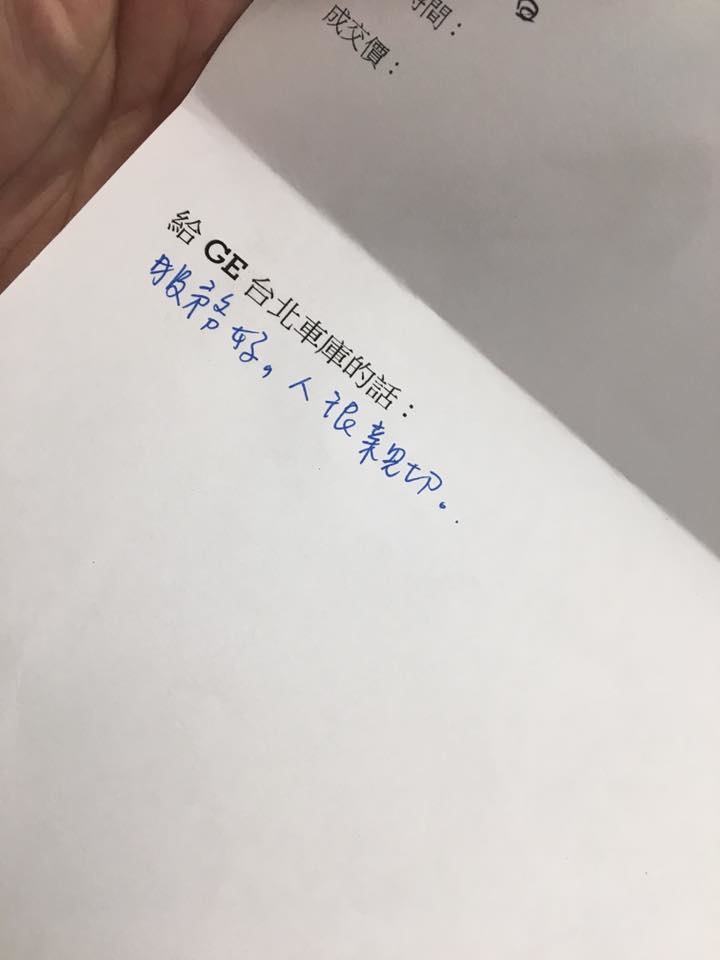 時間：
成交價：
給 GE 台北車庫的話：
服務好，人很親切。